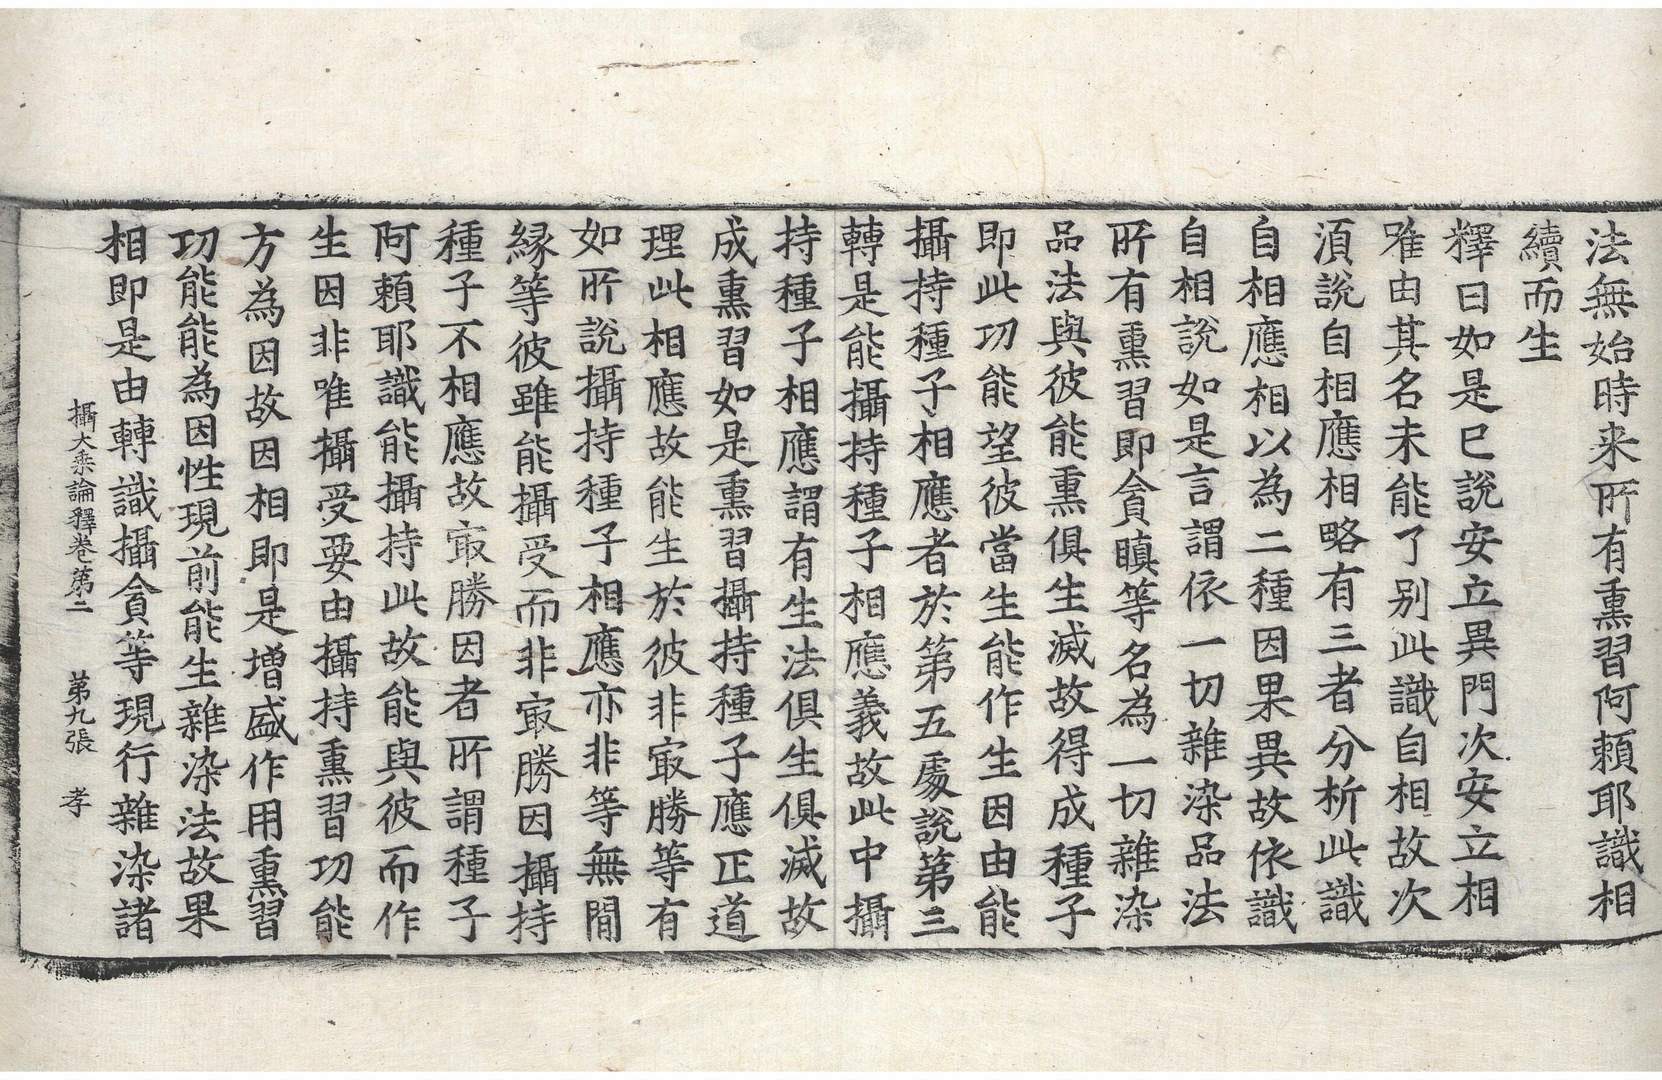 法無始時来所有熏習阿頼耶識相
續而生
釋曰如是已說安立異門次安立相
唯由其名未能了别此識自相故次
湏說自相應相略有三者分析此識
自相應相以為二種因果異故依識
自相說如是言謂依一切雜染品法
所有熏習即貪瞋等名為一切雜染
品法與彼能熏俱生滅故得成種子
即此功能望彼當生能作生因由能
攝持種子相應者於第五處說第三
轉是能攝持種子相應義故此中攝
持種子相應謂有生法俱生俱滅故
成熏習如是熏習攝持種子應正道
理此相應故能生於彼非㝡勝等有
如所說攝持種子相應亦非等無間
縁等彼雖能攝受而非㝡勝因攝持
種子不相應故㝡勝因者所謂種子
阿頼耶識能攝持此故能與彼而作
生因非唯攝受要由攝持熏習功能
方為因故因相即是增盛作用熏習
功能能為因性現前能生雜染法故果
相即是由轉識攝貪等現行雜染諸
攝大乗論釋卷第二　第九張　孝